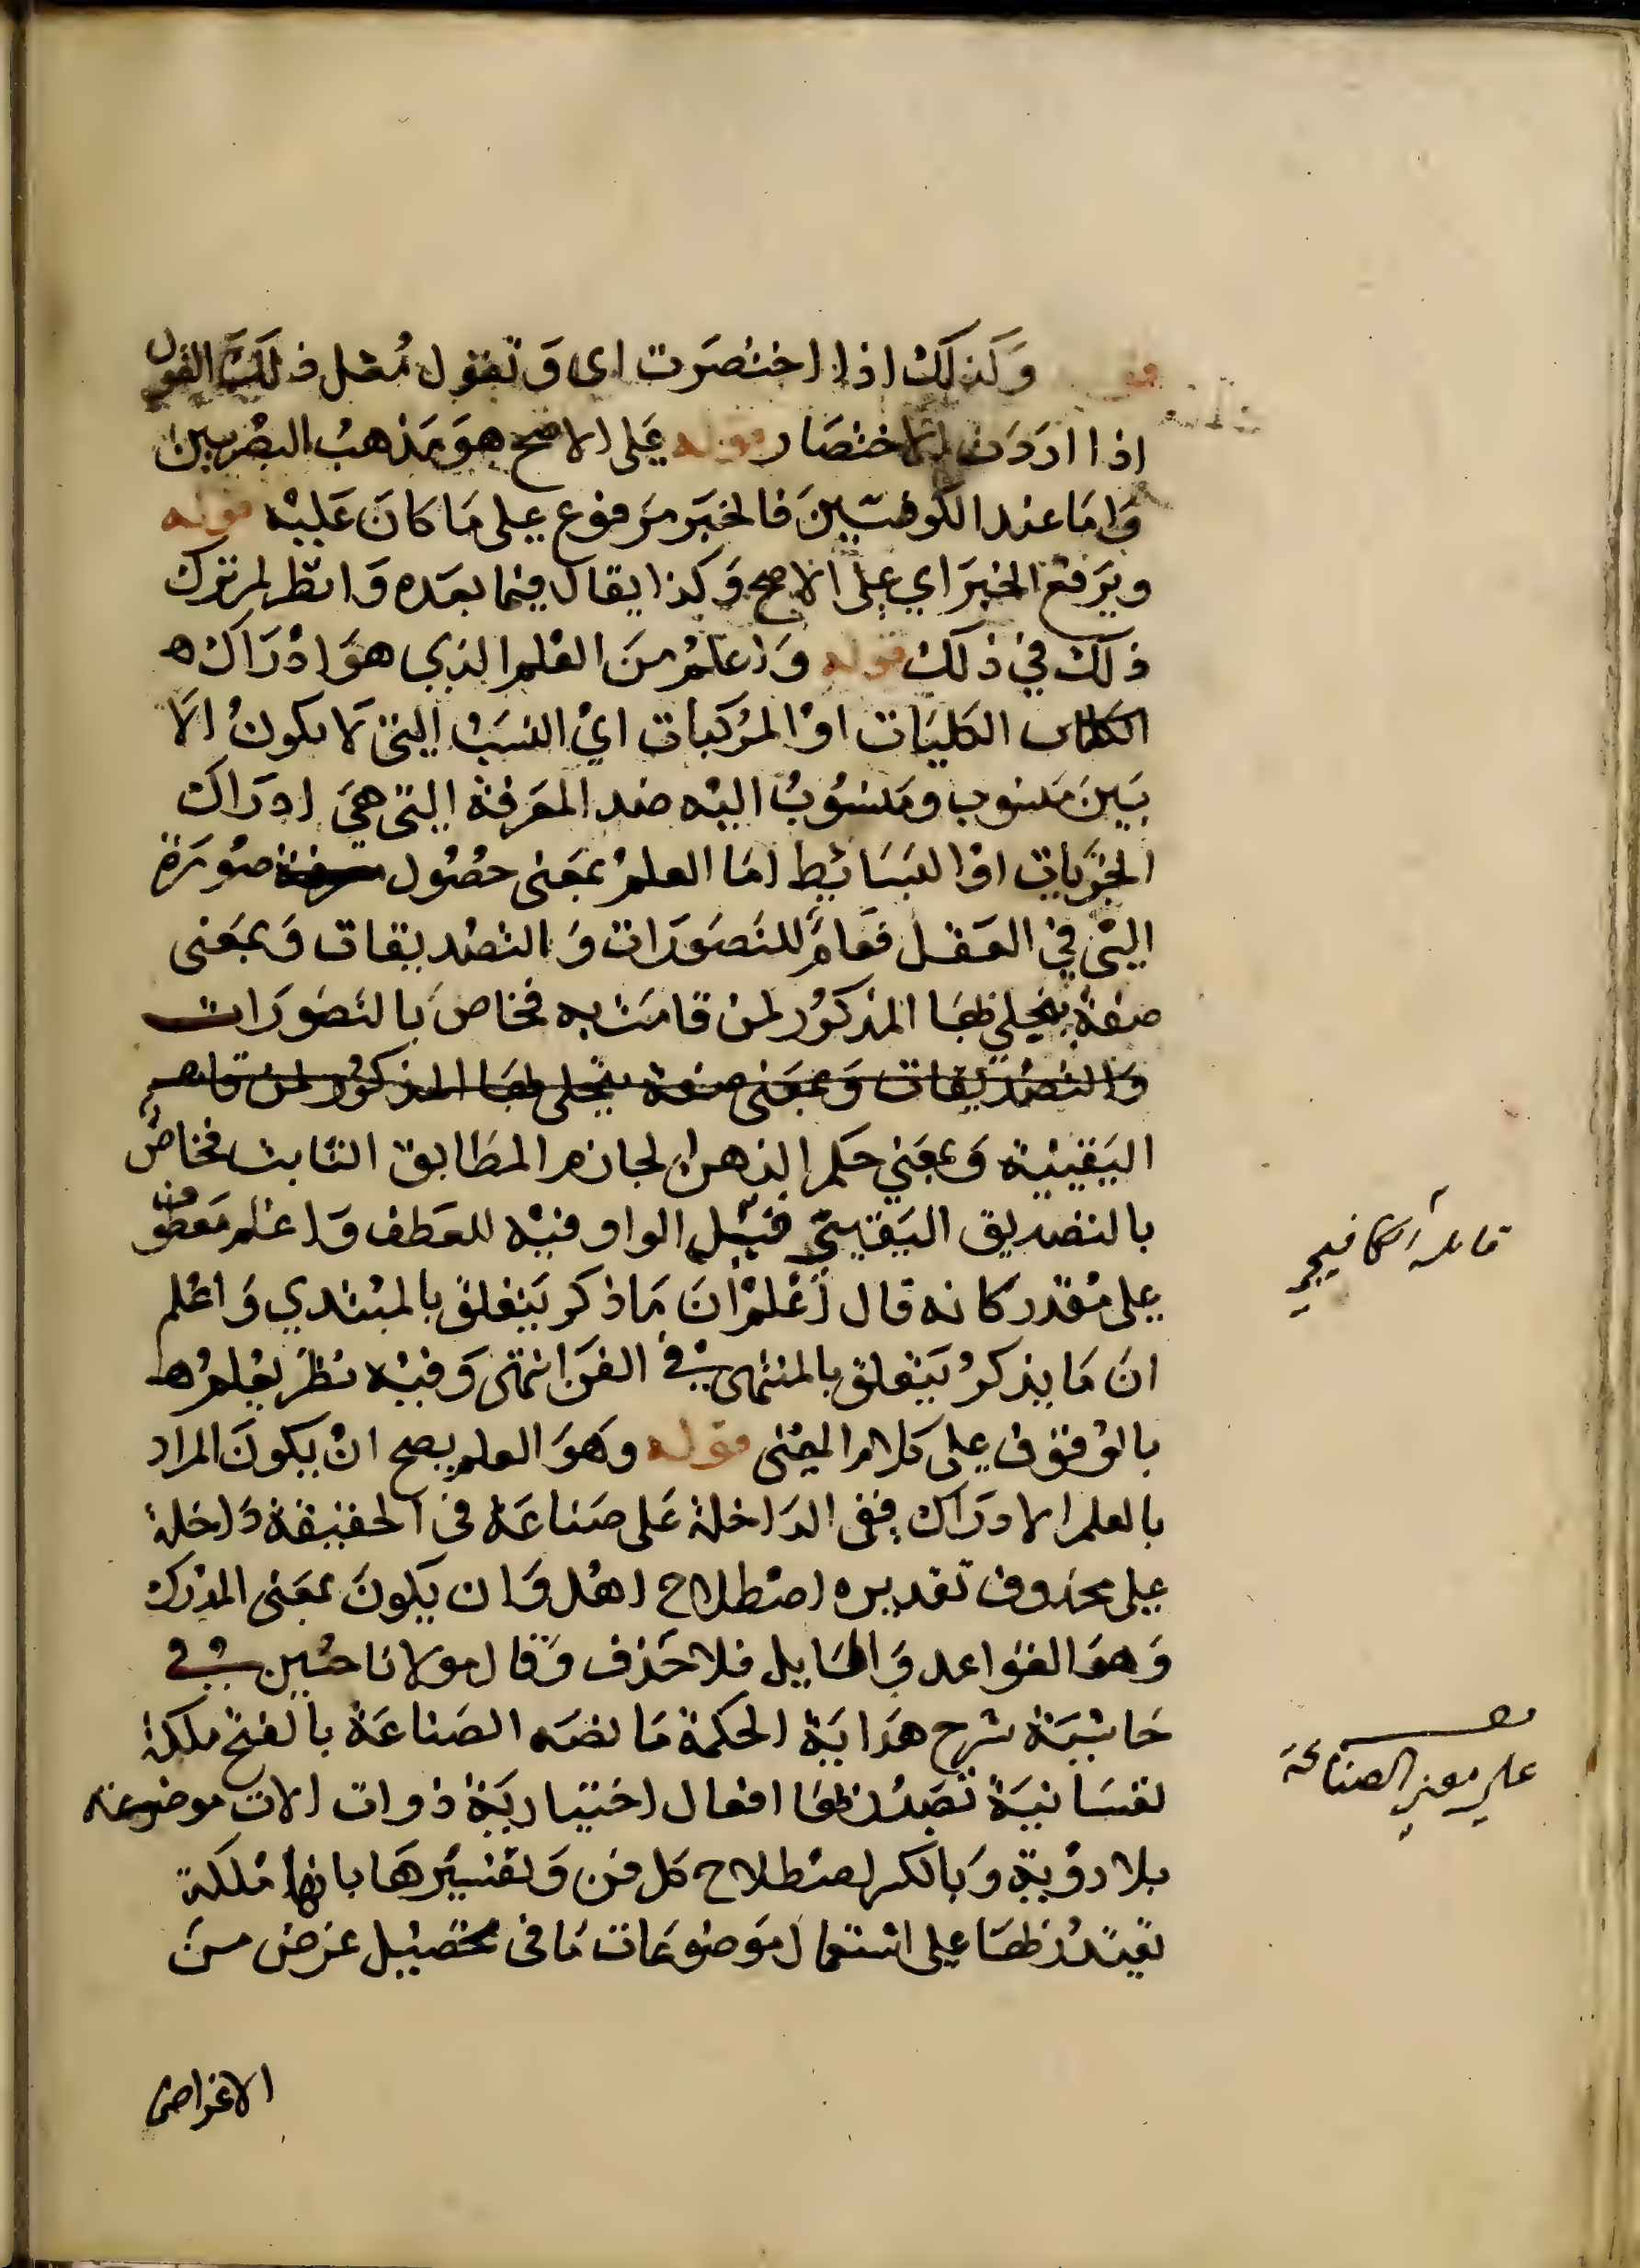 قوله وَكَذلكَ اذا اختصَرت اى وَتقول مُثل ذلكَ القول
اذا اردَت الاختصَار قوله عَلى الاصح هوَ مَذهبُ البصْريين
وَامَا عند الكوفيّينَ فالخبَر مَرفوع على مَا كانَ عَليْه قوله
ويَرفع الخبَر اي على الاصح وَكذا يقال فيما بعَده وَانظر لم ترك
ذلكَ في ذلك قوله وَاعلمْ منَ العْلم الذي هوَ ادْرَاك
الكليَات اوْ المرَكبات ايْ النسَبْ التى لَا يكونُ الَا
بَينَ مَنسوب ومَنسوُبُ اليْه ضد المعَرفة التى هىَ ادرَاك
الجزَيات اوْ البسَائط امَا العلمْ بمعَنى حصُول صوُرَة
التى في العَقل فعَامٌ للتصَورَات وَ التصْديقات وَبمعَنى
صفة يتجلى بهَا المذكوُر لمن قامَت به فخاصَ بالتصَورَات
وَالتصْديقات وَبمعَنى صفة يتجلى بهَا المذكوُر لمن قامـ
اليَقينية وَبمعَني حكم الذهن الجازم المطَابق الثابت فخاصُ
بالتصديق اليَقينىّ قيّل الواو فيْه للعَطف وَاعْلم مَعطوف
على مُقدر كانه قال اعْلمْ انَ مَا ذكر يَتعلق بالمبْتدي وَاعْلم
انَ مَا يذكرُ يَتعلق بالمنتهى في الفنَ انتهى وَفيْه نظرُ يعْلم
بالوْقوف على كلام المغنى قوله وهَوَ العلم يصح انْ يكونَ المراد
بالعلم الادرَاك ففى الدَاخلة عَلى صَناعَة فى الحقيقة دَاخلة
على محذوف تقديره اصْطلاح اهْل وَان يَكونَ بمعَنى المدْرك
وَهوَ القوَاعد وَالمسَايل فلا حَذف وَقال مولانا حسُين في
حَاشيَة شرح هدَايَة الحكمة مَا نصَه الصَناعَة بالفتح ملكة
نفسَانيَة تصَدُر بهَا افعال اختيَاريَة ذوات الات موضوعة
بلا رؤية وَبالكسر اصْطلاح كل فن وَتفسْيَرهَا بانها مَلكَة
يقتدَر بهَا على استعمال موَضوعَات مَا فى تحصْيل غرَض منَ
الاغراض
قاله الكافيجي
على معنى الصناعة